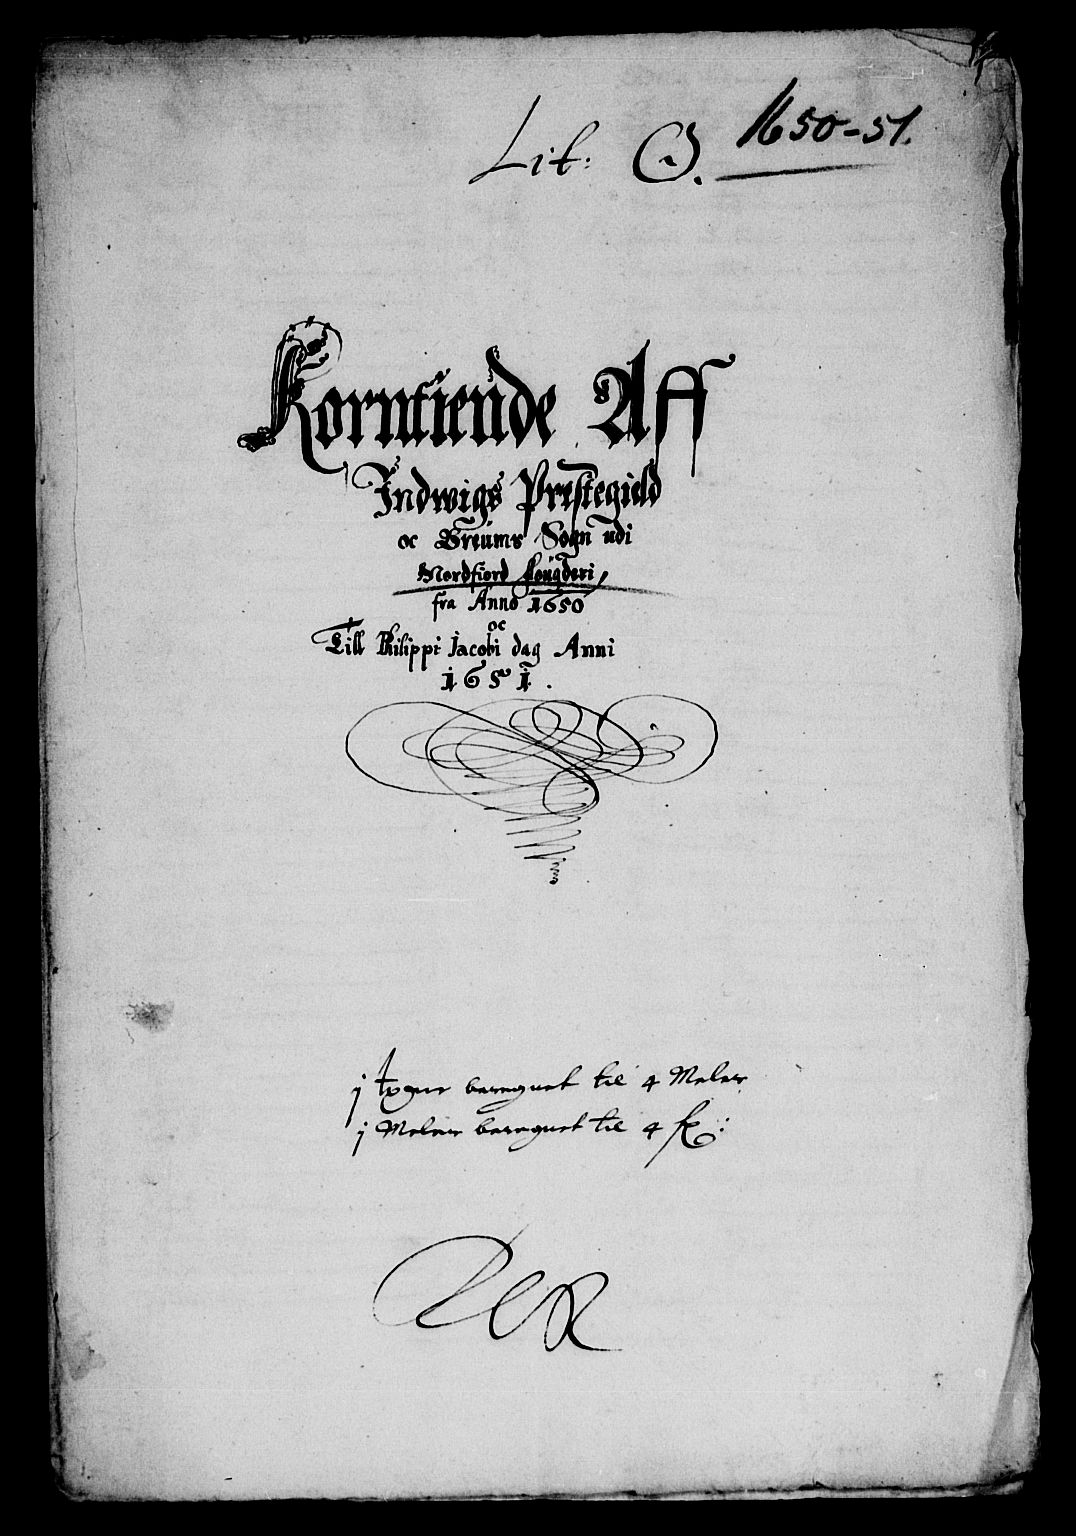 1650-51.
Lit: O.
Korntiende Aff
Indwigs Prestegield
oc Breums Sogn udi
Nordfiord fougderi,
fra Anno 1650
oc
Till Philippi Jacobi dag Anni
1651.
j beregnet til 4 Meler
j Meler beregnet til 4